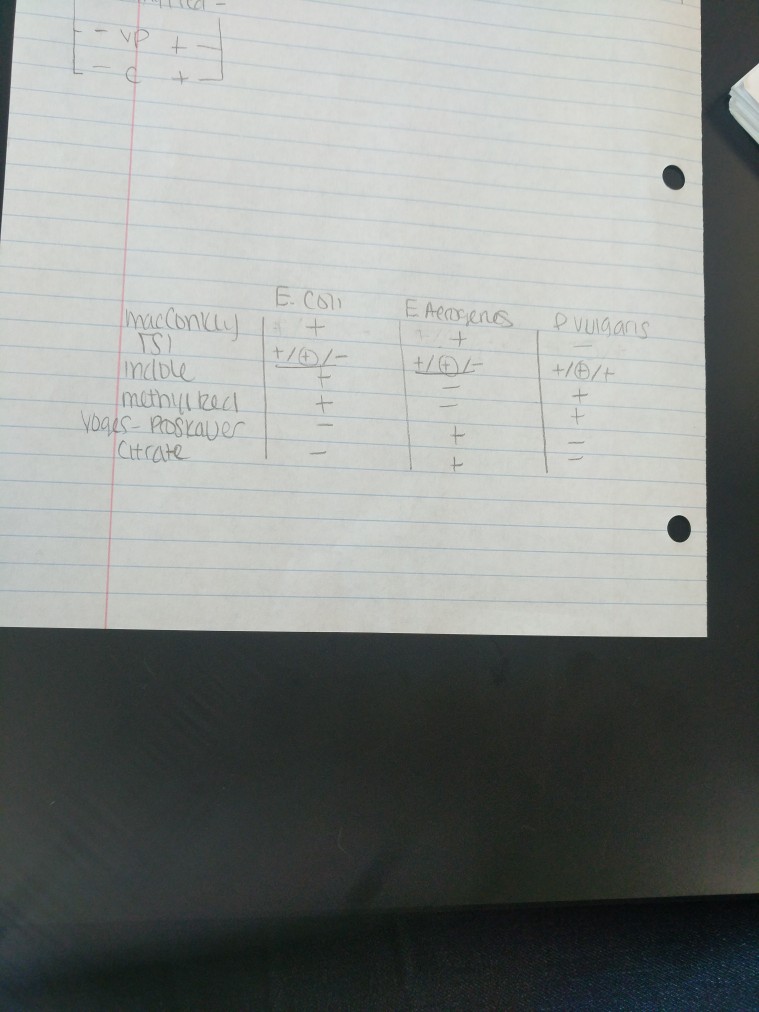 - VP + -
- C + -
E. Coli E Aerogenes P vulgaris
macConkey + + -
TSI +/⊕/- +/⊕/- +/⊕/+
indole + - +
methyl Red + - +
Voges-Proskauer - + -
Citrate - + -